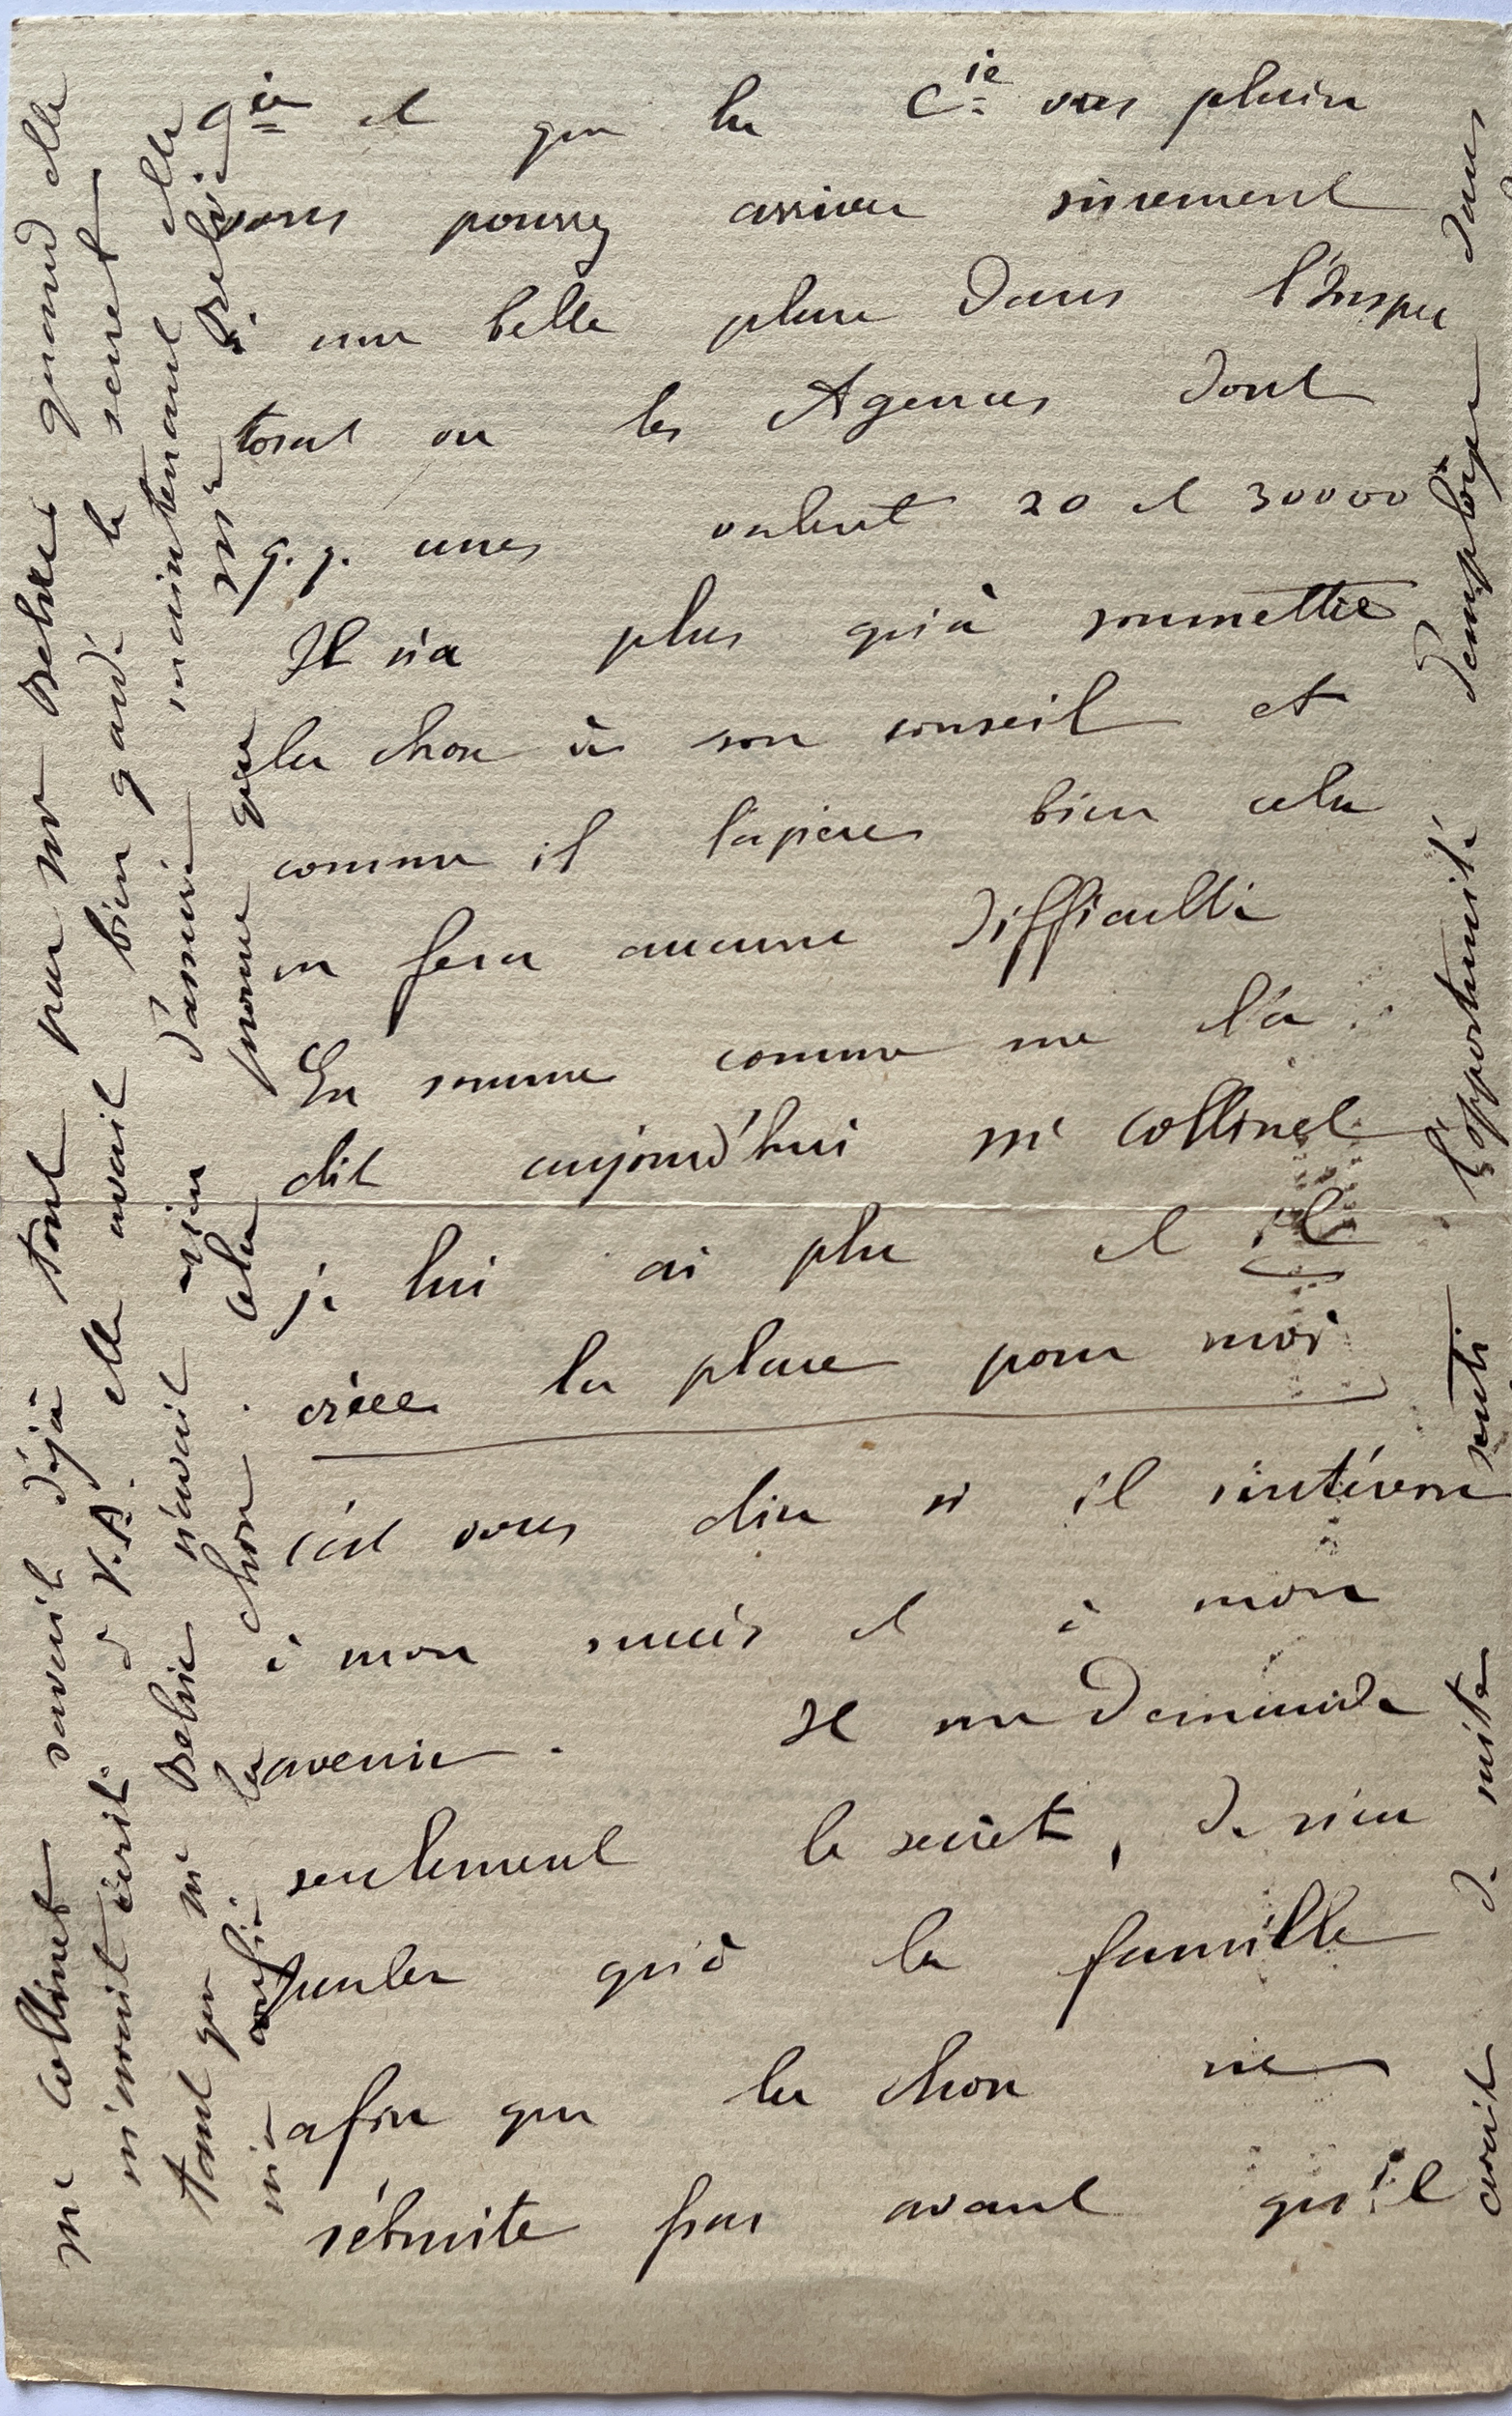 gie et que la Cie vous plaira
vous pourrez arriver sûrement
à une belle place dans l'Inspec
torat ou les Agences dont
q.q. unes valent 20 et 30000
Il n'a plus qu'à soumettre
la chose à son conseil et
comme il l'espère bien cela
ne fera aucune difficulté
En somme comme me l'a
dit aujourd'hui Mr Collinet
je lui ai plu et il
créee la place pour moi
c'est vous dire si il s'intéresse
à mon succès et à mon
avenir. Il me demande
seulement le secret, de n'en
parler qu'à la famille
afin que la chose ne
s'ébruite pas avant qu'il
avait de suite senti l'opportunité d'employer dans
Me Collinet savait déjà tout par Mr Belin quand elle
m'avait écrit à V.A. elle avait bien gardé le secret
tant que Mr Belin n'avait rien d'assuré maintenant elle
m'a confié la chose. Cela prouve que Mr Belin